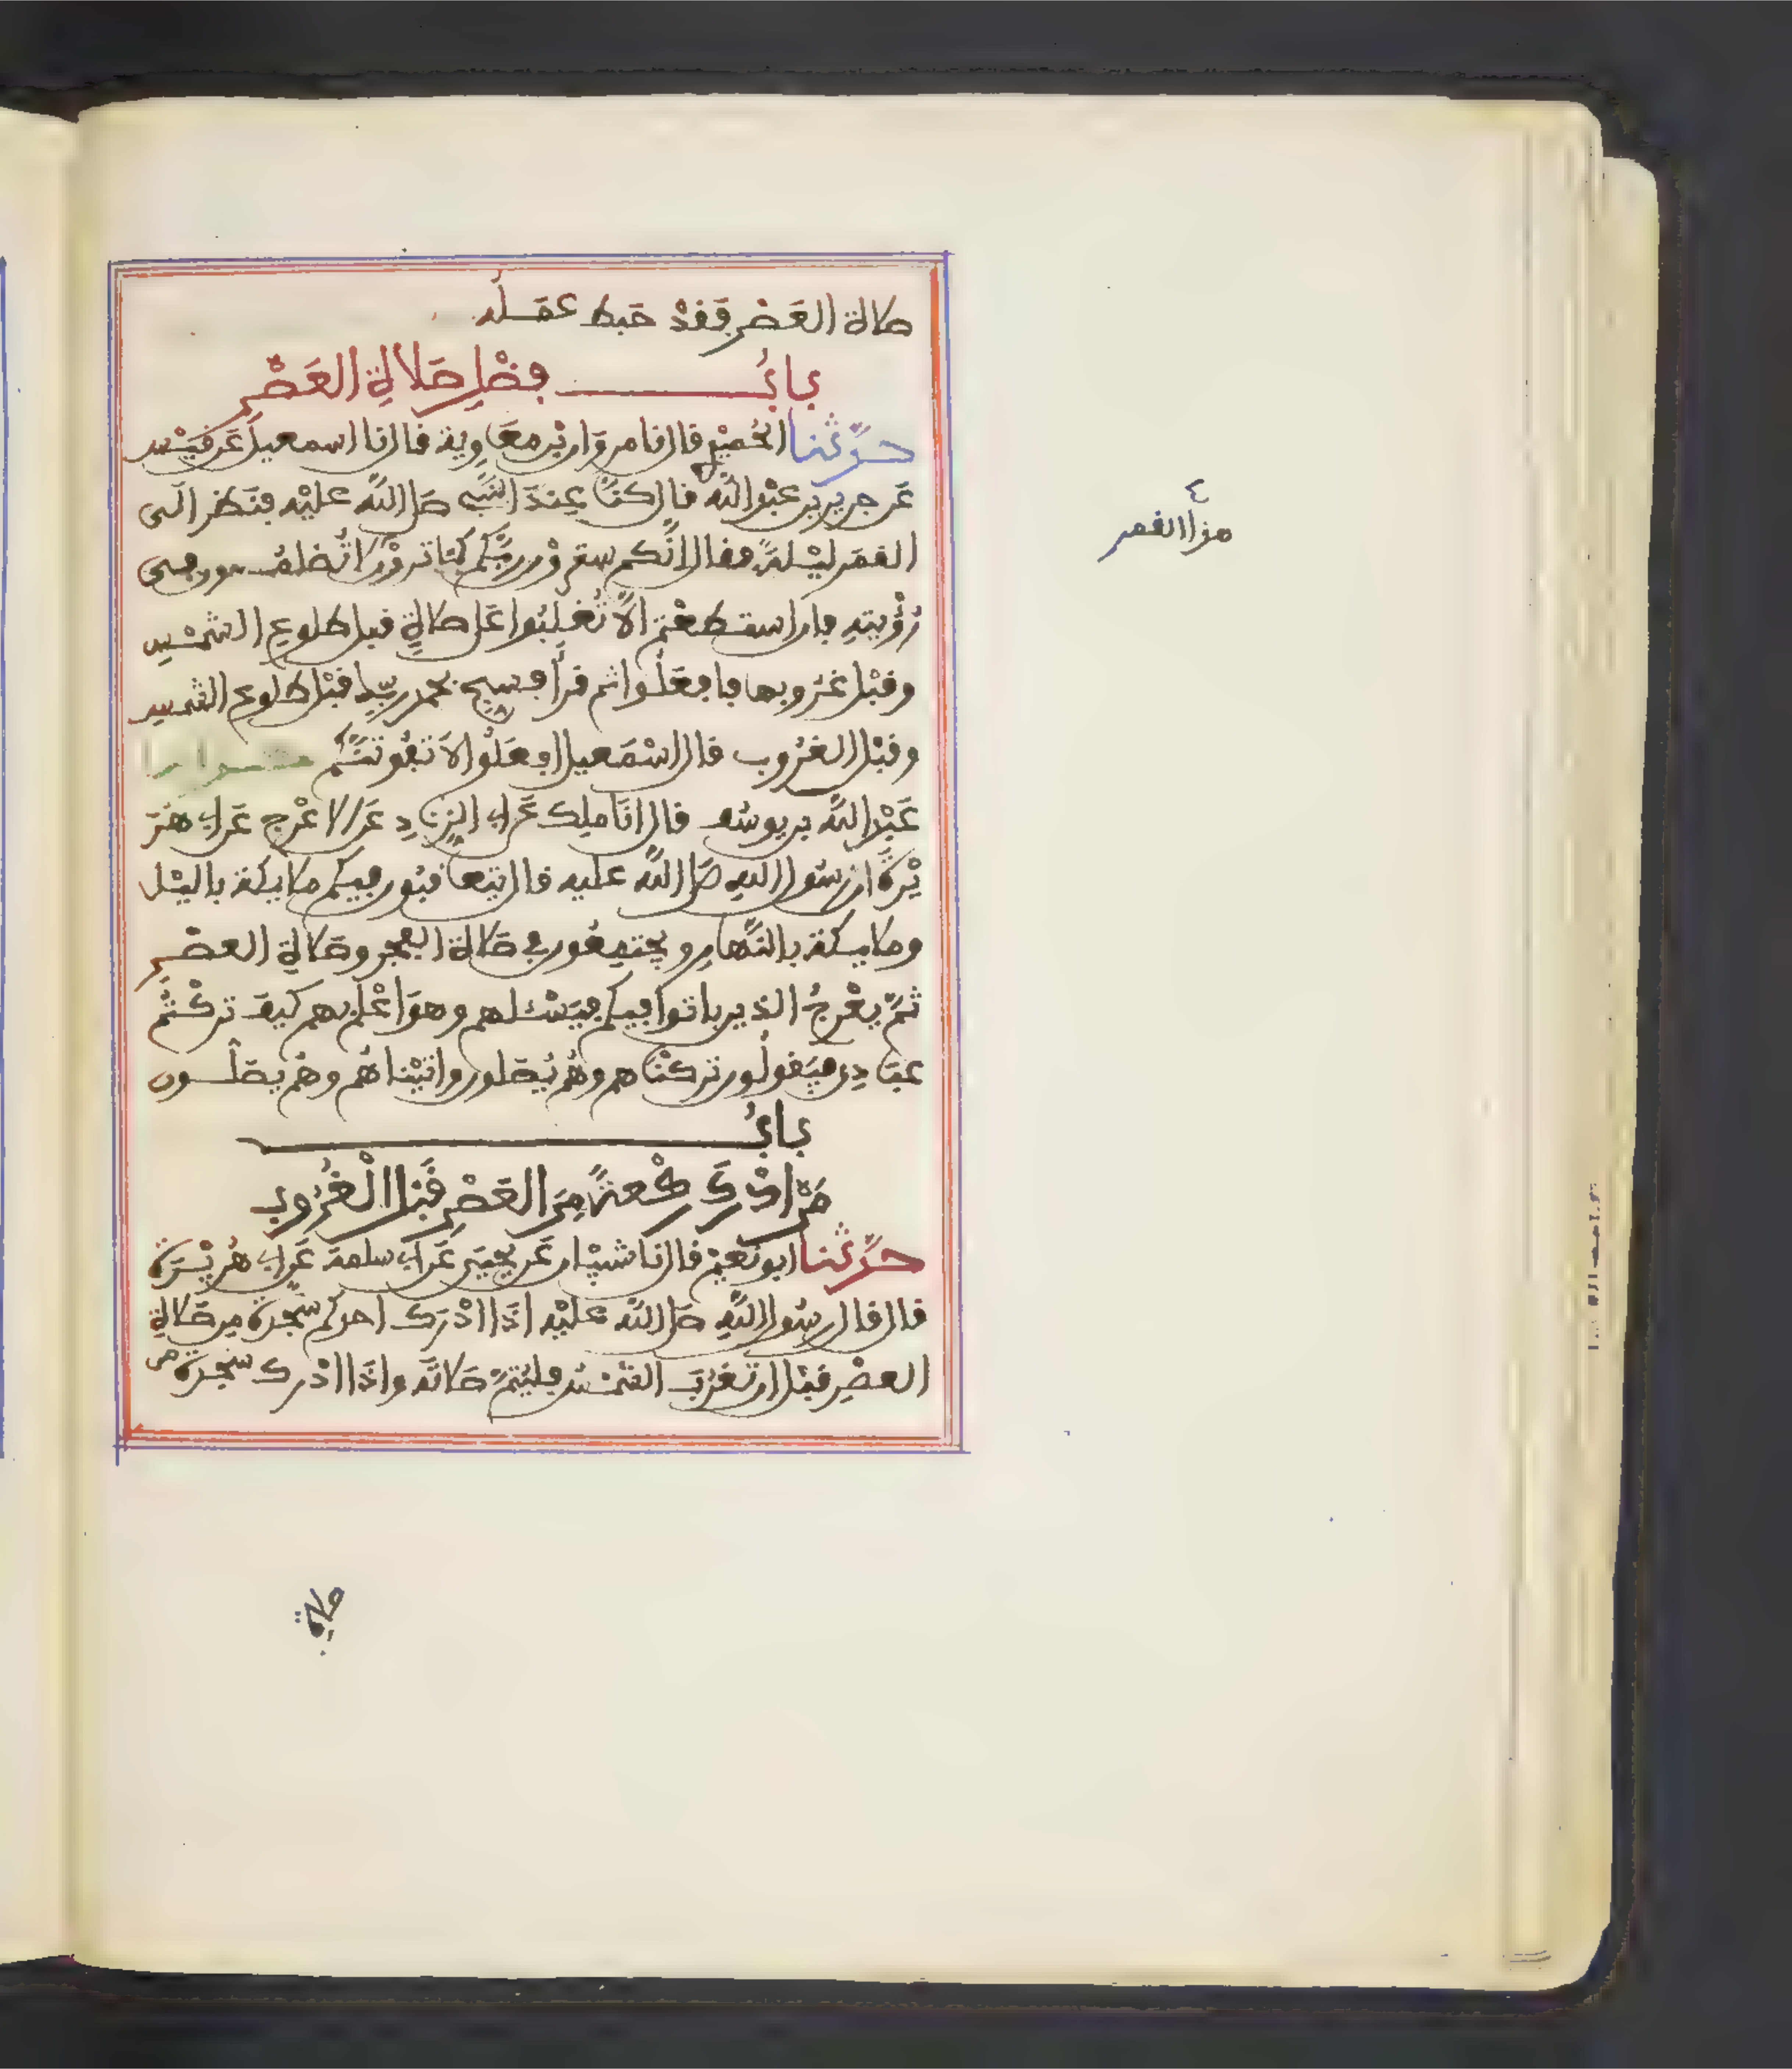 صلاة العَصْر فَقَدْ حَبط عَمَلُه
بابُ فضْلِ صَلاةِ العَصْر
حدّثنا الحُمَيْدي قال نا مروَان بْن معَاوية قال نا اسمعيل عَن قَيْس
عَن جرير بن عبْد الله قال كنّا عِندَ النبي صَلى اللّه عليْه فنَظر الَى
القمَر ليْلةً فقال انَّكم سترَوْن ربَّكم كمَا تروْن لا تُضَامُّون في
رُؤْيتهِ فان استطعْتم الَّا تُغلَبُوا عَلى صلاةٍ قبل طلوعِ الشمْس
وقبْل غرُوبها فافعَلُوا ثم قرأ فسبح بحمد ربّك قبْل طلوع الشمس
وقبْل الغرُوب قال اسْمَعيل افعَلُوا لَا تفُوتَنَّكم حدثنا
عَبْد الله بن يوسُف قال انَا ملك عَن ابي الزنَادِ عَن الاعْرج عَن ابي هُرَ
يْرةَ ان رسُول اللهِ صَلى اللّه عليه قال يتعاقبُون فيكم ملايكة بالليْل
وملايكة بالنّهارِ ويجتمِعُون في صَلاة الفجر وصَلاةِ العصْر
ثمّ يعْرجُ الذين باتوا فيكم فيَسْئلهم وهوَ اعْلم بهم كيفَ تركْتُمْ
عبَادِي فيَقولُون تركنَاهم وهُمْ يُصَلون واتيْناهُم وهُم يصَلُّون
بابُ
مَنْ ادْركَ ركْعةً مِنَ العَصْر قَبْل الْغُرُوب
حدّثنا ابو نُعَيْم قال نا شيْبان عَن يحيَى عَن ابي سلمَة عَن ابي هُريْرَة
قال قال رسُول اللّهِ صَلى اللّه عليْه اذَا ادْرَك احدكم سَجْدة مِن صَلاةِ
العصْرِ قبْل ان تغرُبَ الشمْسُ فليُتمّ صَلاتَه واذَا ادْرك سَجدةً من
٤
هذا القمر
صلاة